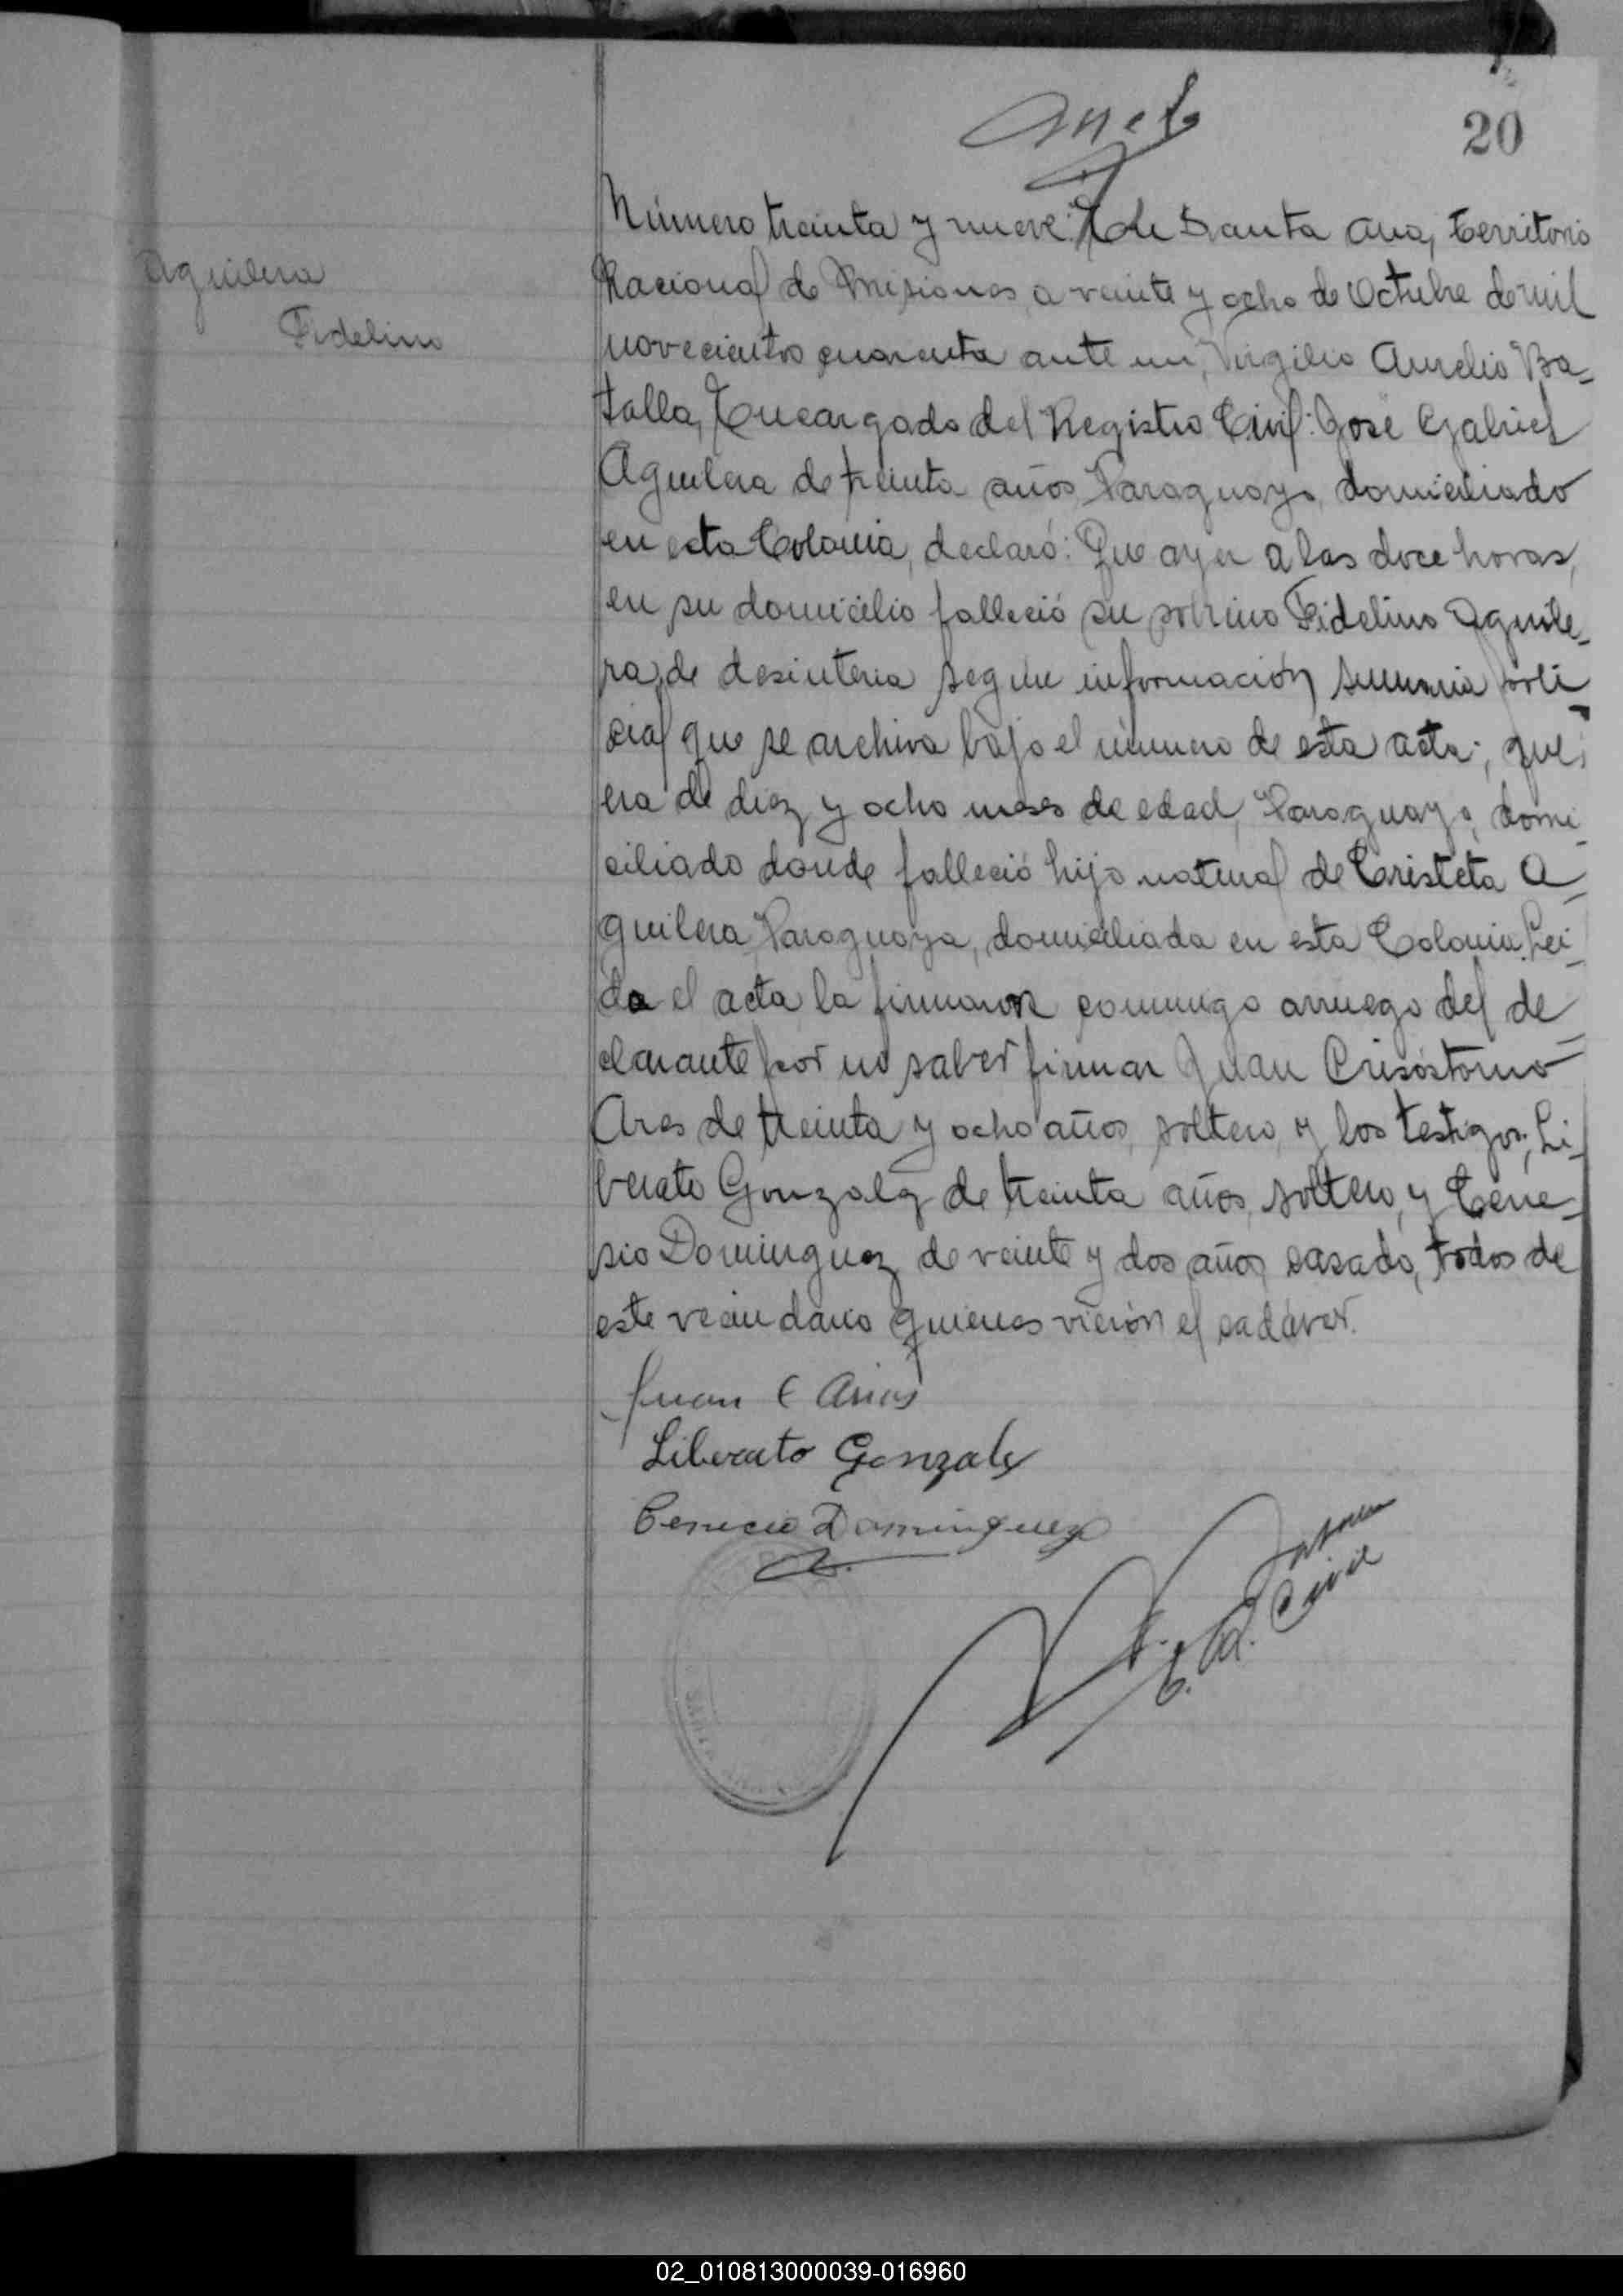 20
Número treinta y nueve: En Santa Ana, territorio
Aguilera
Nacional de Misiones a veinte y ocho de Octubre de mil
Fidelino
novecientos cuarenta ante mi, Virgilio Aurelio Ba-
talla, Encargado del Registro Civil: José Gabriel
Aguilera de treinta años, Paraguayo, domiciliado
en esta Colonia, declaró: Que ayer a las doce horas,
en su domicilio falleció su sobrino Fidelino Aguile-
ra, de desinteria según información sumaria poli
cial que se archiva bajo el número de esta acta; que
era de diez y ocho meses de edad, Paraguayo, domi-
ciliado donde falleció hijo natural de Cristeta A-
guilera, Paraguaya, domiciliada en esta Colonia. Lei-
da el acta la firmaron conmigo arruego del de-
clarante por no saber firmar Juan Crisóstomo
Ares de treinta y ocho años, soltero, y los testigos; Li-
berato Gonzalez de treinta años, soltero, y Cene-
sio Dominguez de veinte y dos años, casado, todos de
este vecindario quienes vierón el cadáver.
Juan C Arias
Liberato Gonzalez
Cenecio Dominguez
Civil
02_010813000039-016960